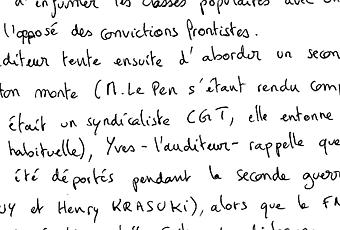 d'enfumer les classes populaires
l'opposé des convictions frontistes.
auditeur tente ensuite d'aborder un secon
ton monte (M. Le Pen s'étant rendu comp
était un syndicaliste CGT, elle entonne
habituelle), Yves - l'auditeur - rappelle que
été déportés pendant la seconde guerr
UY et Henry KRASUKI), alors que le FN